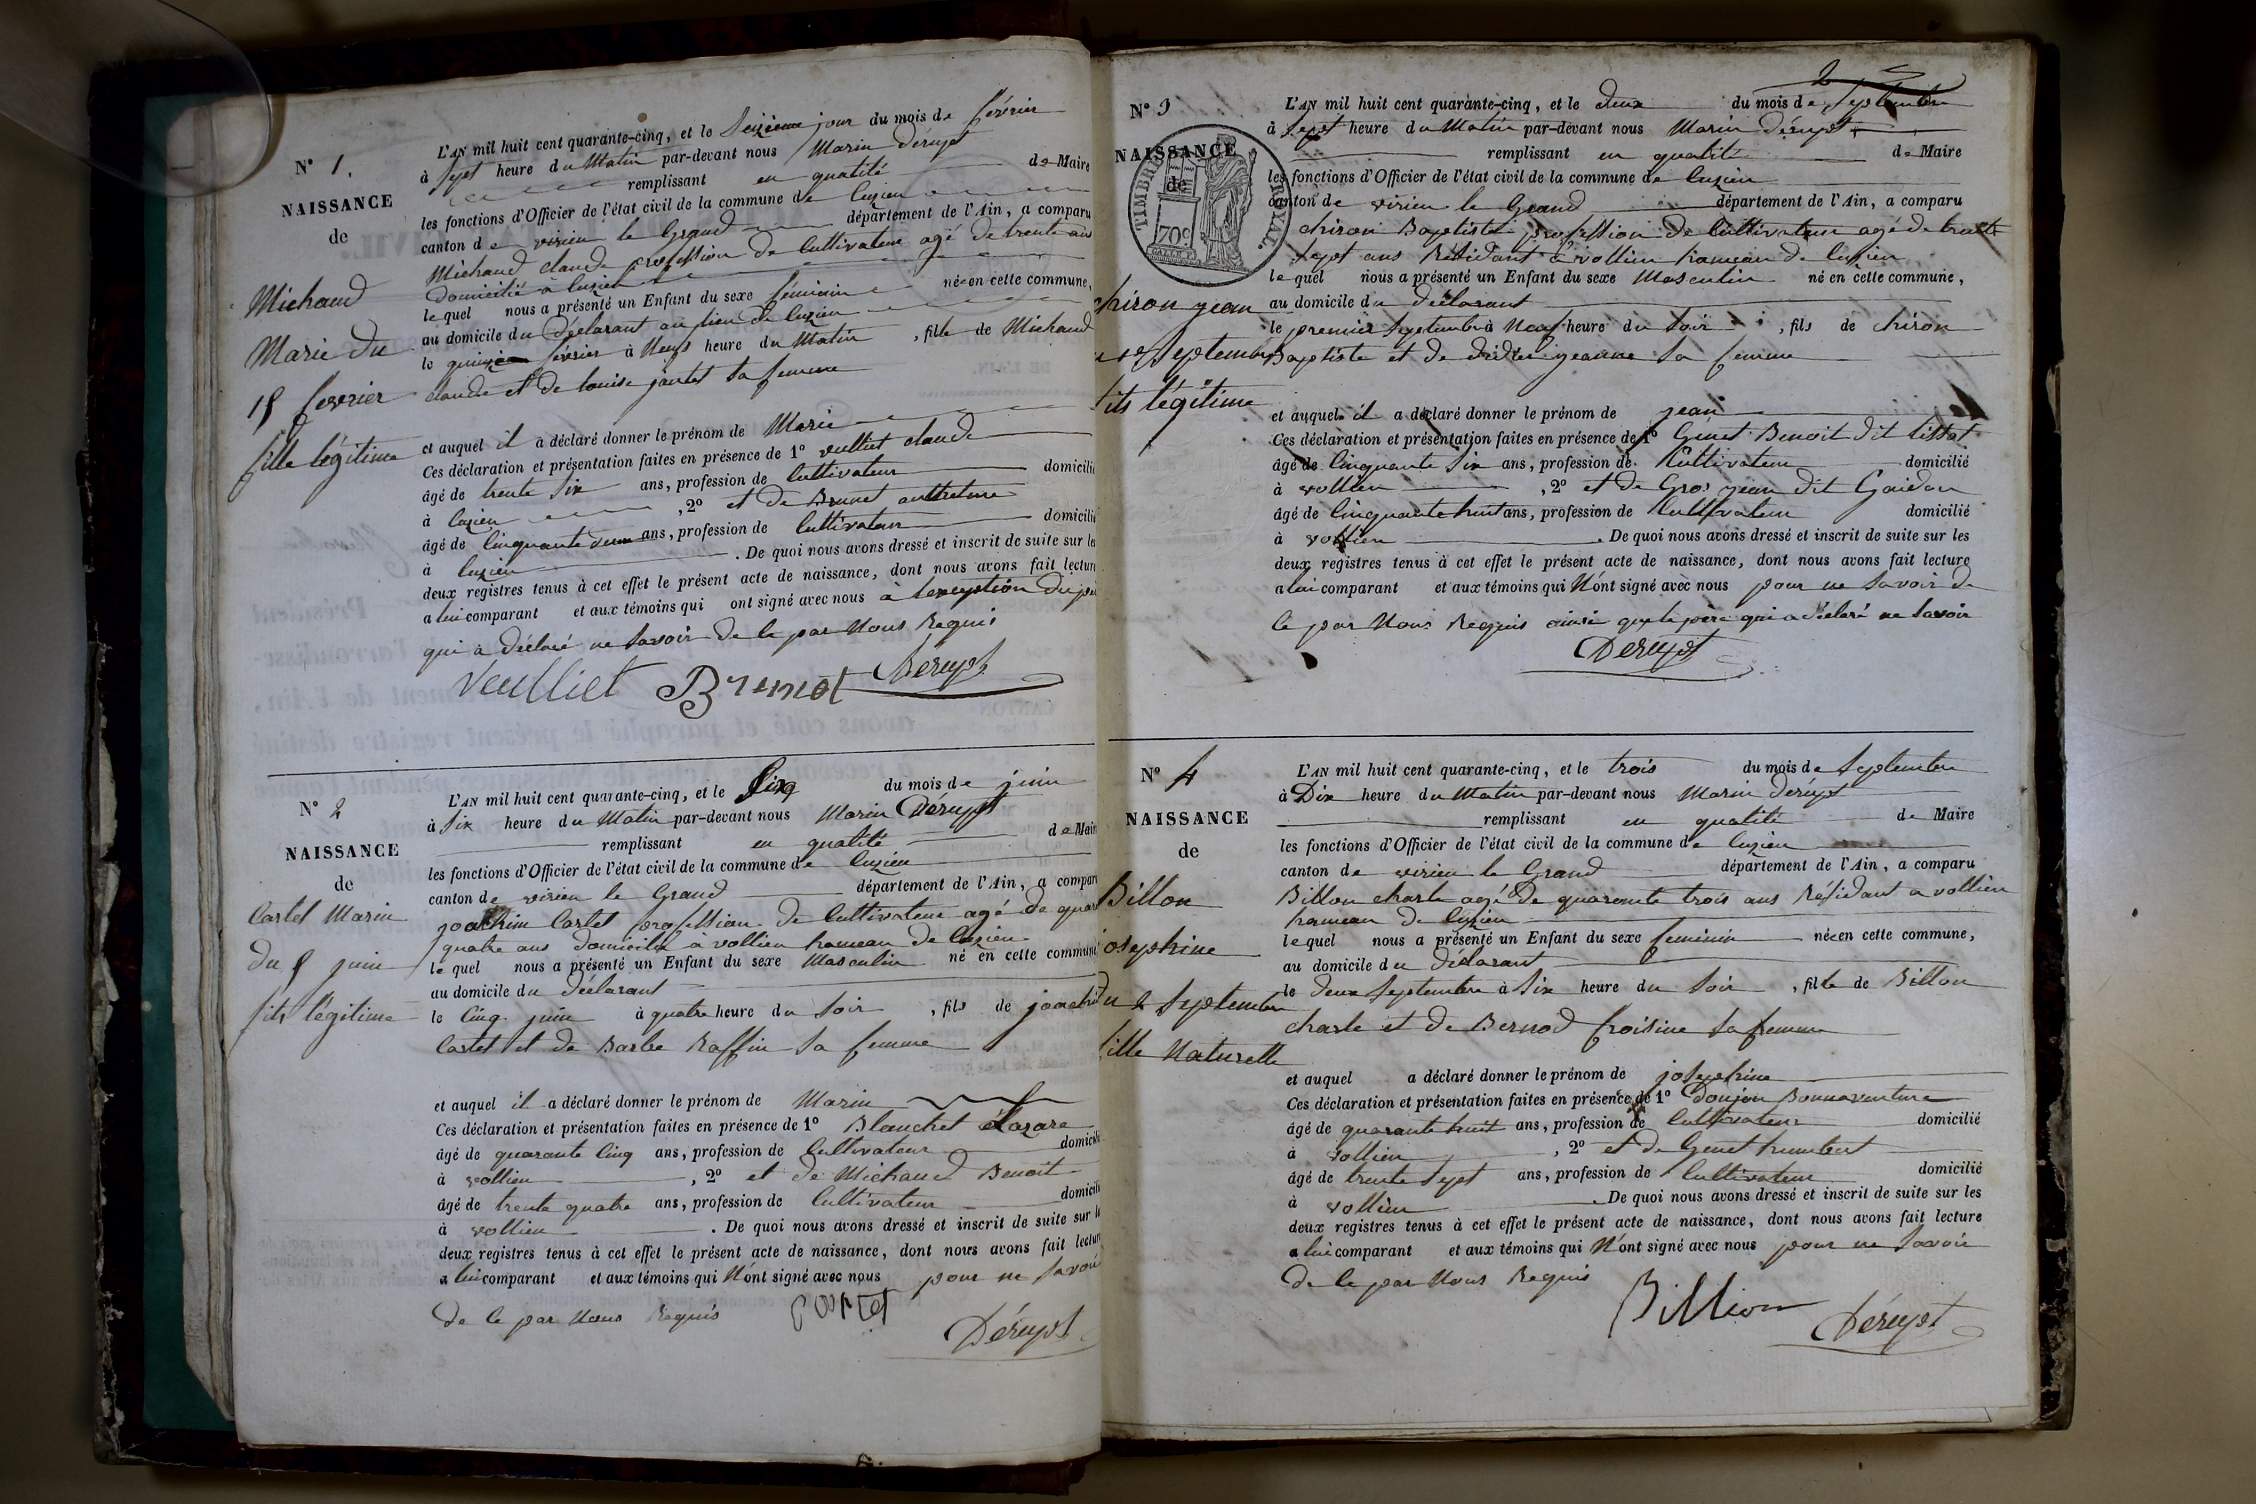 N° 1.
NAISSANCE
de
Michaud
Marie du
15 fevrier
fille légitime
L'AN mil huit cent quarante-cinq, et le Seizieme jour du mois de février
à Sept heure du Matin par-devant nous Marin Déruyot
remplissant en qualité de Maire
les fonctions d'Officier de l'état civil de la commune de luzieu
canton de virieu le Grand département de l'Ain, a comparu
Michaud claude profession de Cultivateur agé de trente ans
Domicilié à luzieu
lequel nous a présenté un Enfant du sexe féminin née en cette commune,
au domicile du Déclarant au lieu de luzieu
le quinze février à Neuf heure du Matin, fille de Michaud
claude et de louise jantet sa femme
et auquel il a déclaré donner le prénom de Marie
Ces déclaration et présentation faites en présence de 1° vulliet claude
âgé de trente Six ans, profession de Cultivateur domicilié
à luzieu, 2° et de Brunet
âgé de Cinquante deux ans, profession de Cultivateur domicilié
à luzieu. De quoi nous avons dressé et inscrit de suite sur les
deux registres tenus à cet effet le présent acte de naissance, dont nous avons fait lecture
a lui comparant et aux témoins qui ont signé avec nous à lexception du
qui a Déclaré ne Savoir De le par Nous Requis
Veulliet Brunet Déruyot
N° 2
NAISSANCE
de
Cartet Marin
du 5 juin
fils légitime
L'AN mil huit cent quarante-cinq, et le Cinq du mois de juin
à Six heure du Matin par-devant nous Marin Déruyot
remplissant en qualité de Maire
les fonctions d'Officier de l'état civil de la commune de luzieu
canton de virieu le Grand département de l'Ain, a comparu
joachim Cartet profession de Cultivateur agé de
quatre ans domicilié a vollien hameau de luzieu
lequel nous a présenté un Enfant du sexe Masculin né en cette commune
au domicile du Déclarant
le Cinq juin à quatre heure du Soir, fils de joachim
Cartet et de Barbe Raffin Sa femme
et auquel il a déclaré donner le prénom de Marin
Ces déclaration et présentation faites en présence de 1° Blanchet élazare
âgé de quarante Cinq ans, profession de Cultivateur domicilié
à vollien, 2° et de Michaud Benoit
âgé de trente quatre ans, profession de Cultivateur domicilié
à vollien. De quoi nous avons dressé et inscrit de suite sur les
deux registres tenus à cet effet le présent acte de naissance, dont nous avons fait lecture
a lui comparant et aux témoins qui N'ont signé avec nous pour ne Savoir
de le par Nous Requis Cartet Déruyot
2
N° 3
NAISSANCE
de
TIMBRE ROYAL.
70c
chiron jean
septembre
fils légitime
L'AN mil huit cent quarante-cinq, et le deux du mois de Septembre
à Sept heure du Matin par-devant nous Marin Déruyot
remplissant en qualité de Maire
les fonctions d'Officier de l'état civil de la commune de luzieu
canton de virieu le Grand département de l'Ain, a comparu
chiron Baptiste profession de Cultivateur agé de trente
Sept ans Résidant à vollien hameau de luzieu
lequel nous a présenté un Enfant du sexe Masculin né en cette commune,
au domicile du déclarant
le premier Septembre à Neuf heure du Soir, fils de chiron
Baptiste et de didier jeanne Sa femme
et auquel il a déclaré donner le prénom de jean
Ces déclaration et présentation faites en présence de 1° Genet Benoit dit tissot
âgé de Cinquante Six ans, profession de Cultivateur domicilié
à vollien, 2° et de Gros jean dit Gaidon
âgé de Cinquante huit ans, profession de Cultivateur domicilié
à vollien. De quoi nous avons dressé et inscrit de suite sur les
deux registres tenus à cet effet le présent acte de naissance, dont nous avons fait lecture
a lui comparant et aux témoins qui N'ont signé avec nous pour ne Savoir de
le par Nous Requis ainsi que le père qui a déclaré ne Savoir
Déruyot
N° 4
NAISSANCE
de
Billon
josephine
du 2 Septembre
fille Naturelle
L'AN mil huit cent quarante-cinq, et le trois du mois de Septembre
à Dix heure du Matin par-devant nous Marin Déruyot
remplissant en qualité de Maire
les fonctions d'Officier de l'état civil de la commune de luzieu
canton de virieu le Grand département de l'Ain, a comparu
Billon charle agé De quarante trois ans Résidant a vollien
hameau de luzieu
lequel nous a présenté un Enfant du sexe feminin née en cette commune,
au domicile du Déclarant
le deux Septembre à Six heure du Soir, fille de Billon
charle et de Bernod froisine Sa femme
et auquel a déclaré donner le prénom de josephine
Ces déclaration et présentation faites en présence de 1° Donjon Bonnaventure
âgé de quarante huit ans, profession de Cultivateur domicilié
à vollien, 2° et de Genet humbert
âgé de trente Sept ans, profession de Cultivateur domicilié
à vollien. De quoi nous avons dressé et inscrit de suite sur les
deux registres tenus à cet effet le présent acte de naissance, dont nous avons fait lecture
a lui comparant et aux témoins qui N'ont signé avec nous pour ne Savoir
de le par Nous Requis
Billion Déruyot